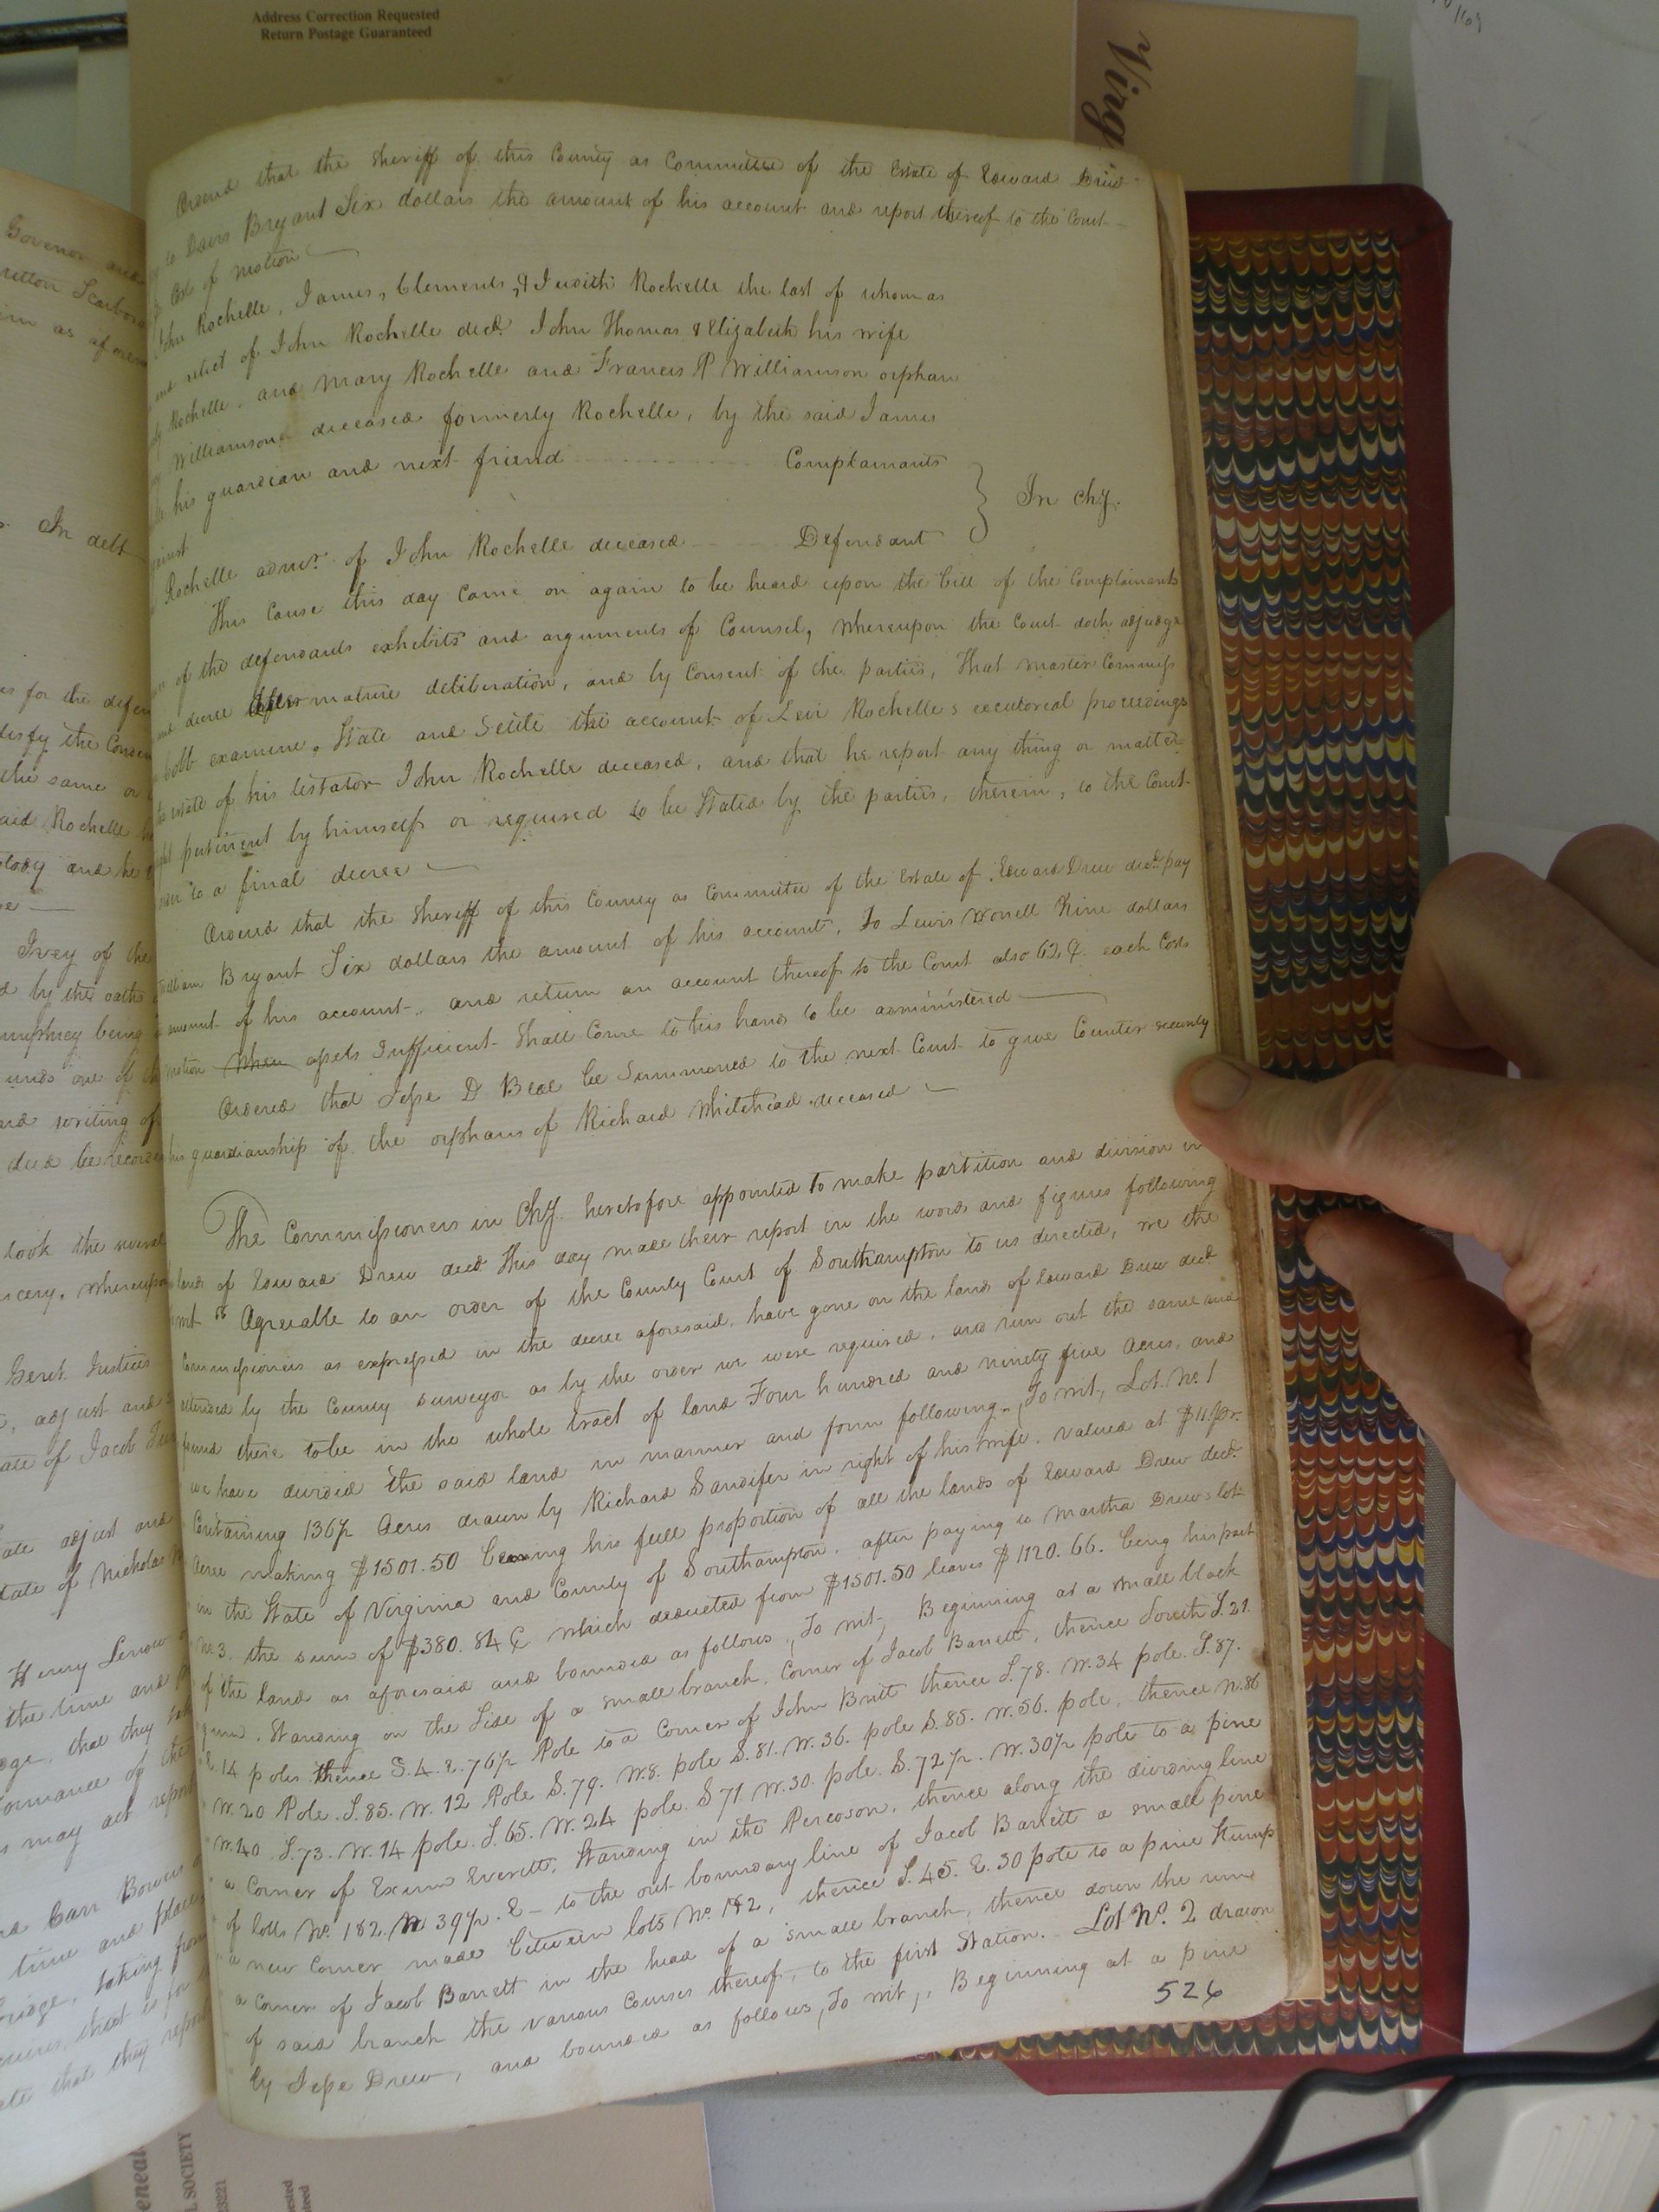 Address Correction Requested
Return Postage Guaranteed
Virg
Ordered that the Sheriff of this County as Committee of the Estate of Edward Drew
to Davis Bryant Six dollars the amount of his account and report thereof to the Court
Cost of motion
John Rochelle, James, Clements, & Judith Rochelle the last of whom as
and relict of John Rochelle decd. John Thomas & Elizabeth his wife
Rochelle, and Mary Rochelle and Francis P Williamson orphan
Williamson deceased formerly Rochelle, by the said James
his guardian and next friend Complainants
In Chy.
against
Rochelle admr. of John Rochelle deceased Defendant
This Cause this day Came on again to be heard upon the bill of the Complainants
of the defendants exhibits and arguments of Counsel, Whereupon the Court doth adjudge
and decree after mature deliberation, and by Consent of the parties, That master Commiss
Cobb examine, State and Settle the account of Levi Rochelles executoreal proceedings
estate of his testator John Rochelle deceased, and that he report any thing or matter
pertinent by himself or required to be Stated by the parties, therein, to the Court
to a final decree
Ordered that the Sheriff of this County as Committee of the Estate of Edward Drew decd. pay
William Bryant Six dollars the amount of his account, To Lewis Worrell Nine dollars
amount of his account, and return an account thereof to the Court also 62 ₵ each Costs
motion When assets Sufficient Shall Come to his hands to be administered
Ordered that Jesse D Beal be Summoned to the next Court to give Counter security
his guardianship of the orphans of Richard Whitehead deceased
The Commissioners in Chy. heretofore appointed to make partition and division in
lands of Edward Drew decd. This day made their report in the words and figures following
wit " Agreeable to an order of the County Court of Southampton to us directed, we the
Commissioners as expressed in the decree aforesaid, have gone on the lands of Edward Drew decd.
attended by the County surveyor as by the order we were required, and run out the same and
found there to be in the whole tract of land Four hundred and ninety five Acres, and
we have divided the said land in manner and form following, To wit, Lot No. 1
Containing 136½ Acres drawn by Richard Sandifer in right of his wife, valued at $11 pr.
Acre making $1501.50 being his full proportion of all the lands of Edward Drew decd.
in the State of Virginia and County of Southampton, after paying to Martha Drews lot
No. 3, the sum of $380.84 ₵ which deducted from $1501.50 leaves $1120.66. being his part
of the land as aforesaid and bounded as follows, To wit, Beginning at a small black
gum, Standing on the Side of a small branch, Corner of Jacob Barrett, thence South S.21.
E.14 poles thence S.4.E.76½ Pole to a Corner of John Britt thence S.78. W.34 pole. S.87.
W.20 Pole. S.85. W.12 Pole S.79. W.8. pole S.81. W.36. pole S.85. W.56. pole, thence N.86
W.40. S.73. W.14 pole. S.65. W.24 pole. S 71. W.30. pole. S.72½. W.30½ pole to a pine
a Corner of Exum Everett, Standing in the Percoson, thence along the dividing line
of lotts No. 1&2. N 39½. E – to the out boundary line of Jacob Barrett a small pine
a new Corner made between lots No. 1&2, thence S.45. E.30 pole to a pine Stump
a Corner of Jacob Barrett in the head of a small branch, thence down the run
of said branch the various Courses thereof, to the first Station. Lot No. 2 drawn
by Jesse Drew, and bounded as follows, To wit, Beginning at a pine
526
Govenor and
In debt
for the defen
the same or
said Rochelle
and he
Ivey of the
by the oath
umphrey being
one of
writing of
look the
Whereupon
Gent. Justices
adjust and
ate of Jacob
adjust and
tate of Nicholas
Henry
the time and
that they
may act
Carr Bowers
time and place
taking
that they report
L SOCIETY
23221